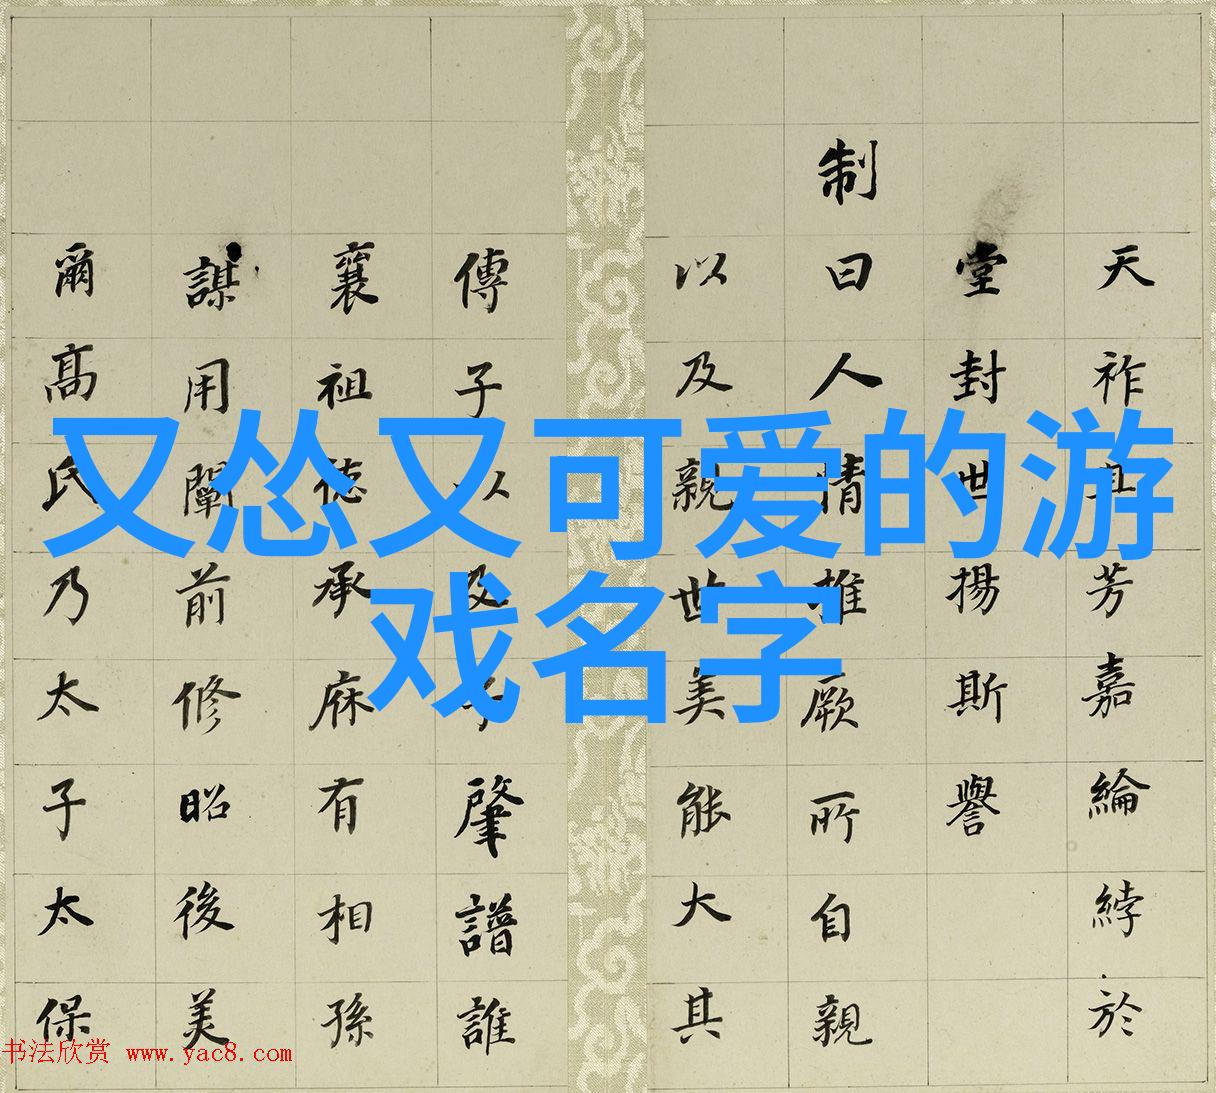 又怂又可爱的游
戏名字
天祚芳嘉綸綍於
堂封世揚斯譽
制曰人情推厥所自親
以及親世美能大其
傳子以及子肇譜誰
襄祖德承庥有相孫
謀用闡前修昭後美
爾高氏乃太子太保
书法欣赏 www.yac8.com